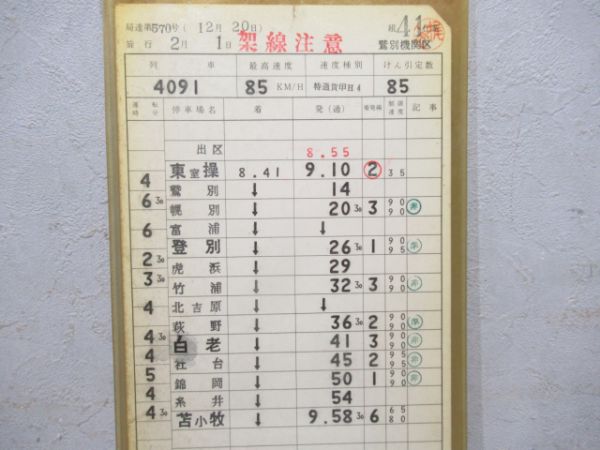 局達第570号(12月20日)
施行 2月 1日 架線注意 組 41 仕業
鷲別機関区
列 車 最高速度 速度種別 けん引定数
4091 85 KM/H 特通貨甲H4 85
運転時分 停車場名 着 発(通) 着発線 制限速度 記事
出区 8.55
東室操 8.41 9.10 2 35
4
鷲別 ↓ 14
6 30
幌別 ↓ 20 30 3 90 90
富浦 ↓ ↓
6
登別 ↓ 26 30 1 90 95
虎浜 ↓ 29
2 30
竹浦 ↓ 32 30 3 90 95
3 30
北吉原 ↓ ↓
4
萩野 ↓ 36 30 2 90 90
4 30
白老 ↓ 41 3 90 90
4
社台 ↓ 45 2 95 95
5
錦岡 ↓ 50 1 90 90
4
糸井 ↓ 54
4 30
苫小牧 ↓ 9.58 30 6 65 80